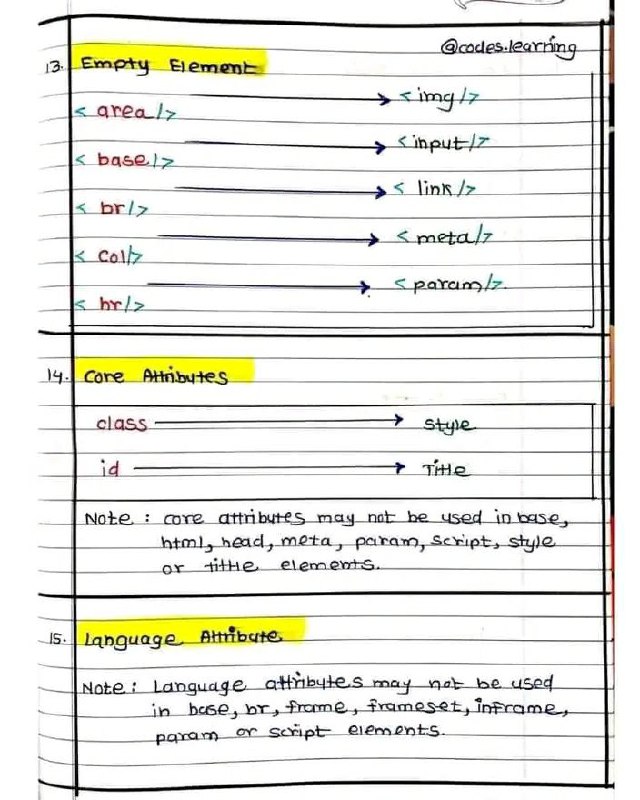 @codes.learning
13. Empty Element
<area/> → <img/>
<base/> → <input/>
<br/> → <link/>
<col/> → <meta/>
<hr/> → <param/>
14. Core Attributes
class → style
id → Title
Note : core attributes may not be used in base,
html, head, meta, param, script, style
or tittle elements.
15. Language Attribute
Note : Language attributes may not be used
in base, br, frame, frameset, inframe,
param or script elements.